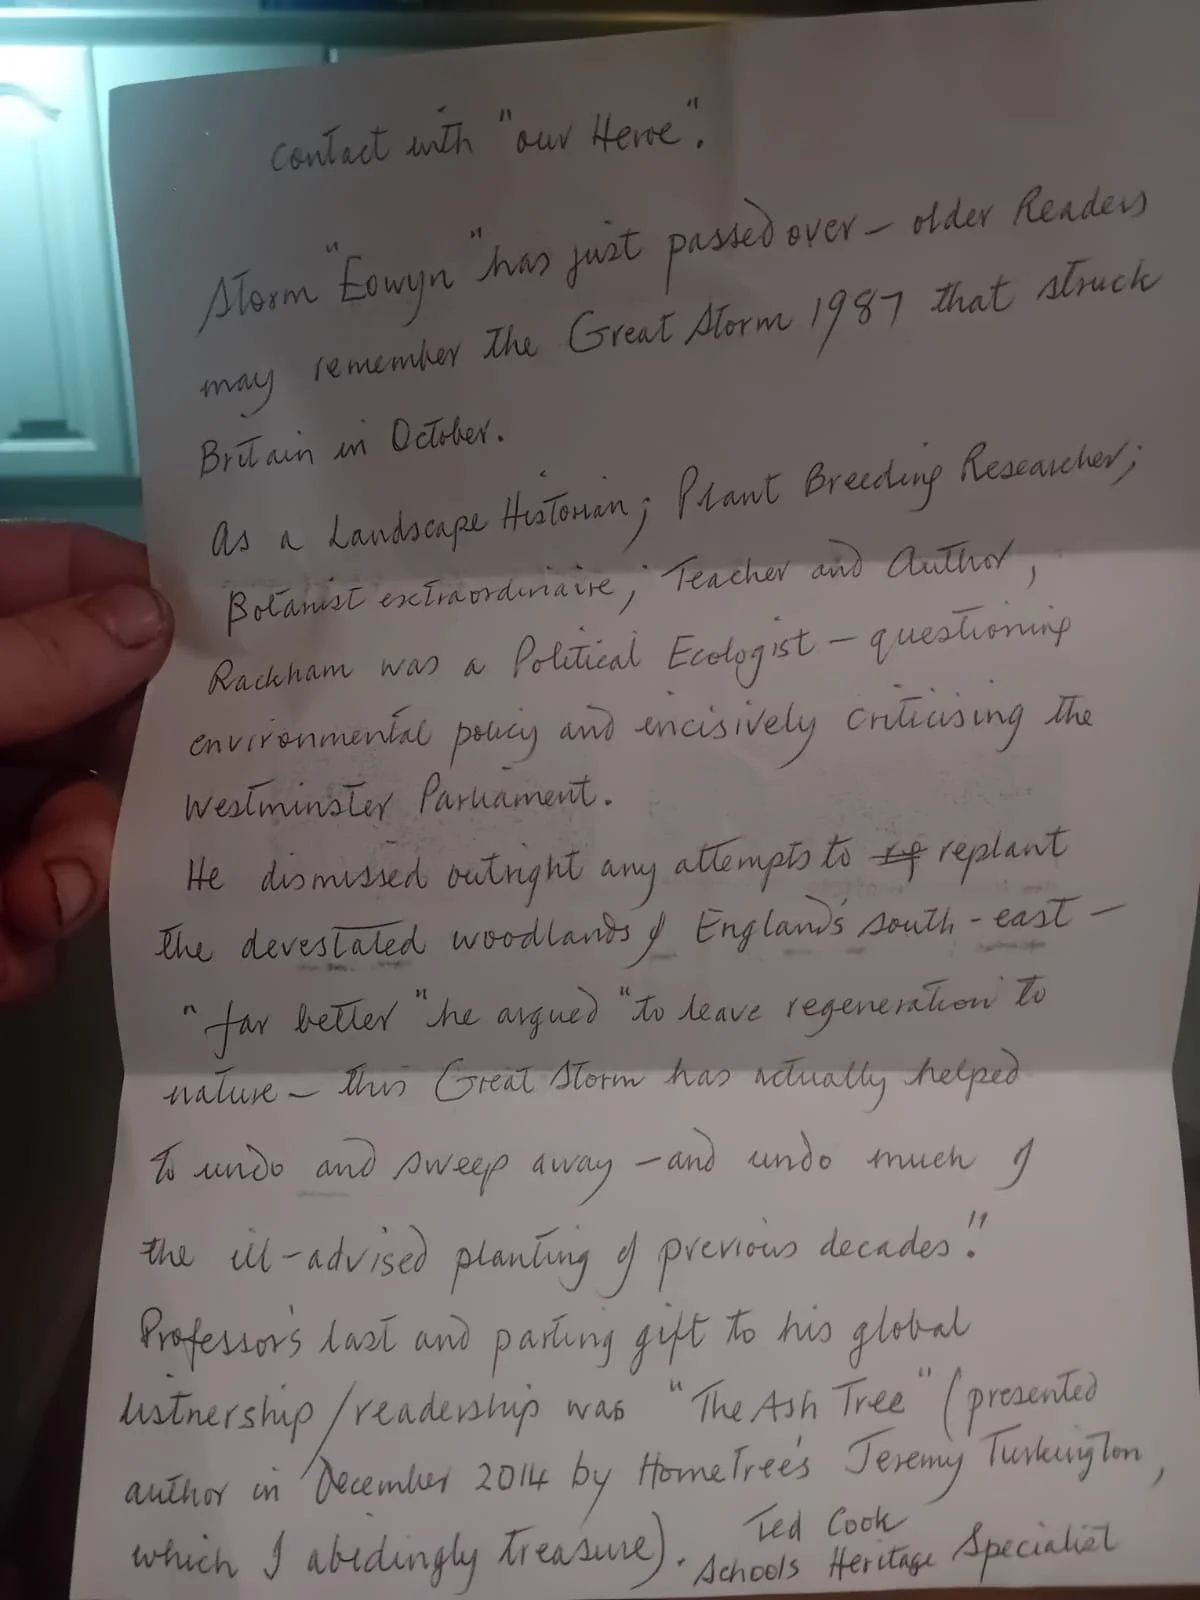 contact with "our Heroe".
Storm "Eowyn" has just passed over – older Readers
may remember the Great Storm 1987 that struck
Britain in October.
As a Landscape Historian; Plant Breeding Researcher;
Botanist extraordiniaire; Teacher and Author,
Rackham was a Political Ecologist – questioning
environmental policy and incisively criticising the
Westminster Parliament.
He dismissed outright any attempts to replant
the devestated woodlands of England's south-east –
"far better" he argued "to leave regeneration to
nature – this Great Storm has actually helped
to undo and sweep away – and undo much of
the ill-advised planting of previous decades."
Professor's last and parting gift to his global
listnership/readership was "The Ash Tree" (presented
author in December 2014 by HomeTree's Jeremy Turkington,
which I abidingly treasure).
Ted Cook
Schools Heritage Specialist